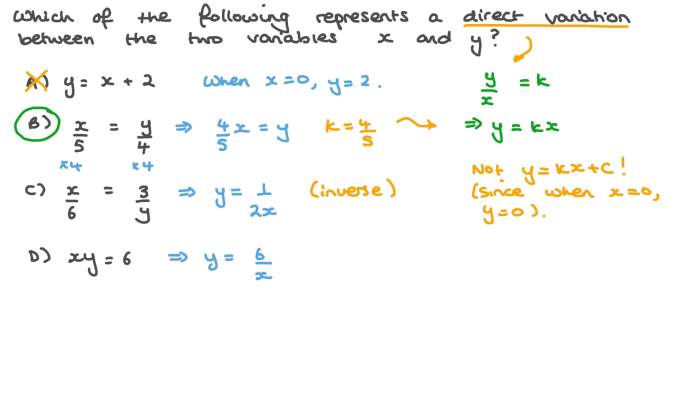 Which of the following represents a direct variation
between the two variables x and y?
A) y = x + 2 When x=0, y=2. y/x = k
B) x/5 = y/4 ⇒ 4/5 x = y k = 4/5 ⇒ y = kx
×4 ×4
Not y=kx+c!
C) x/6 = 3/y ⇒ y = 1/2x (inverse) (since when x=0,
y=0).
D) xy = 6 ⇒ y = 6/x